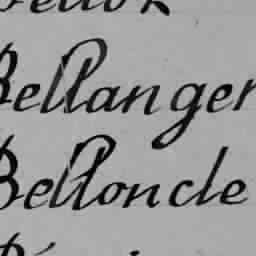 Bellanger
Belloncle